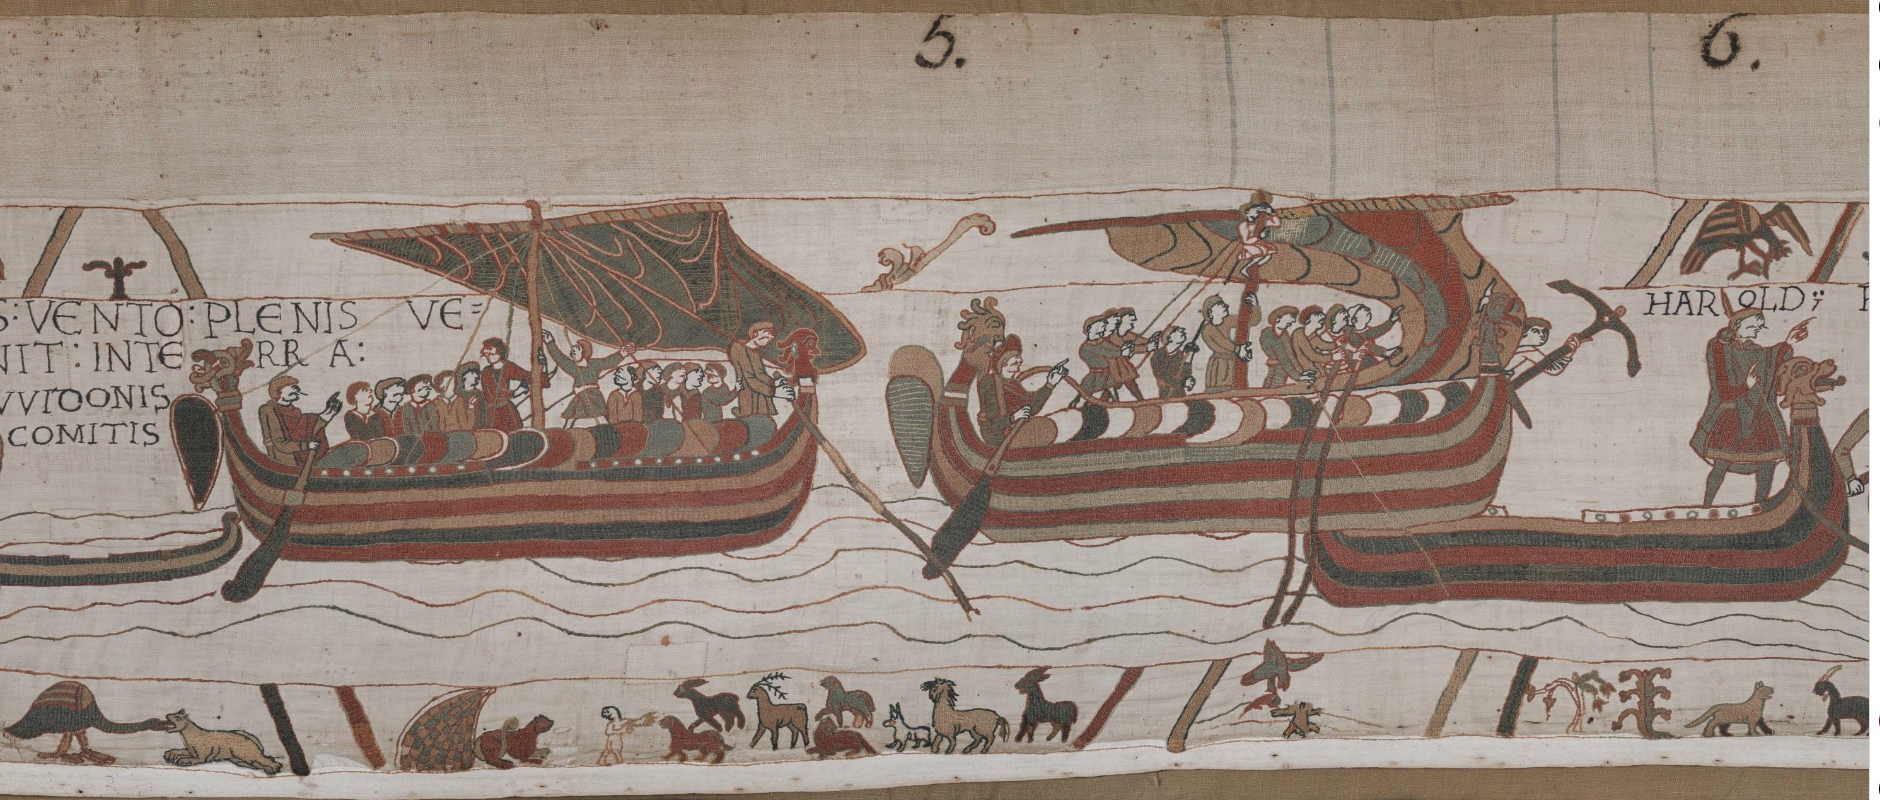 5. 6.
S : VENTO : PLENIS VE=
NIT : INTE RR A :
VVIDONIS
COMITIS
HAROLD